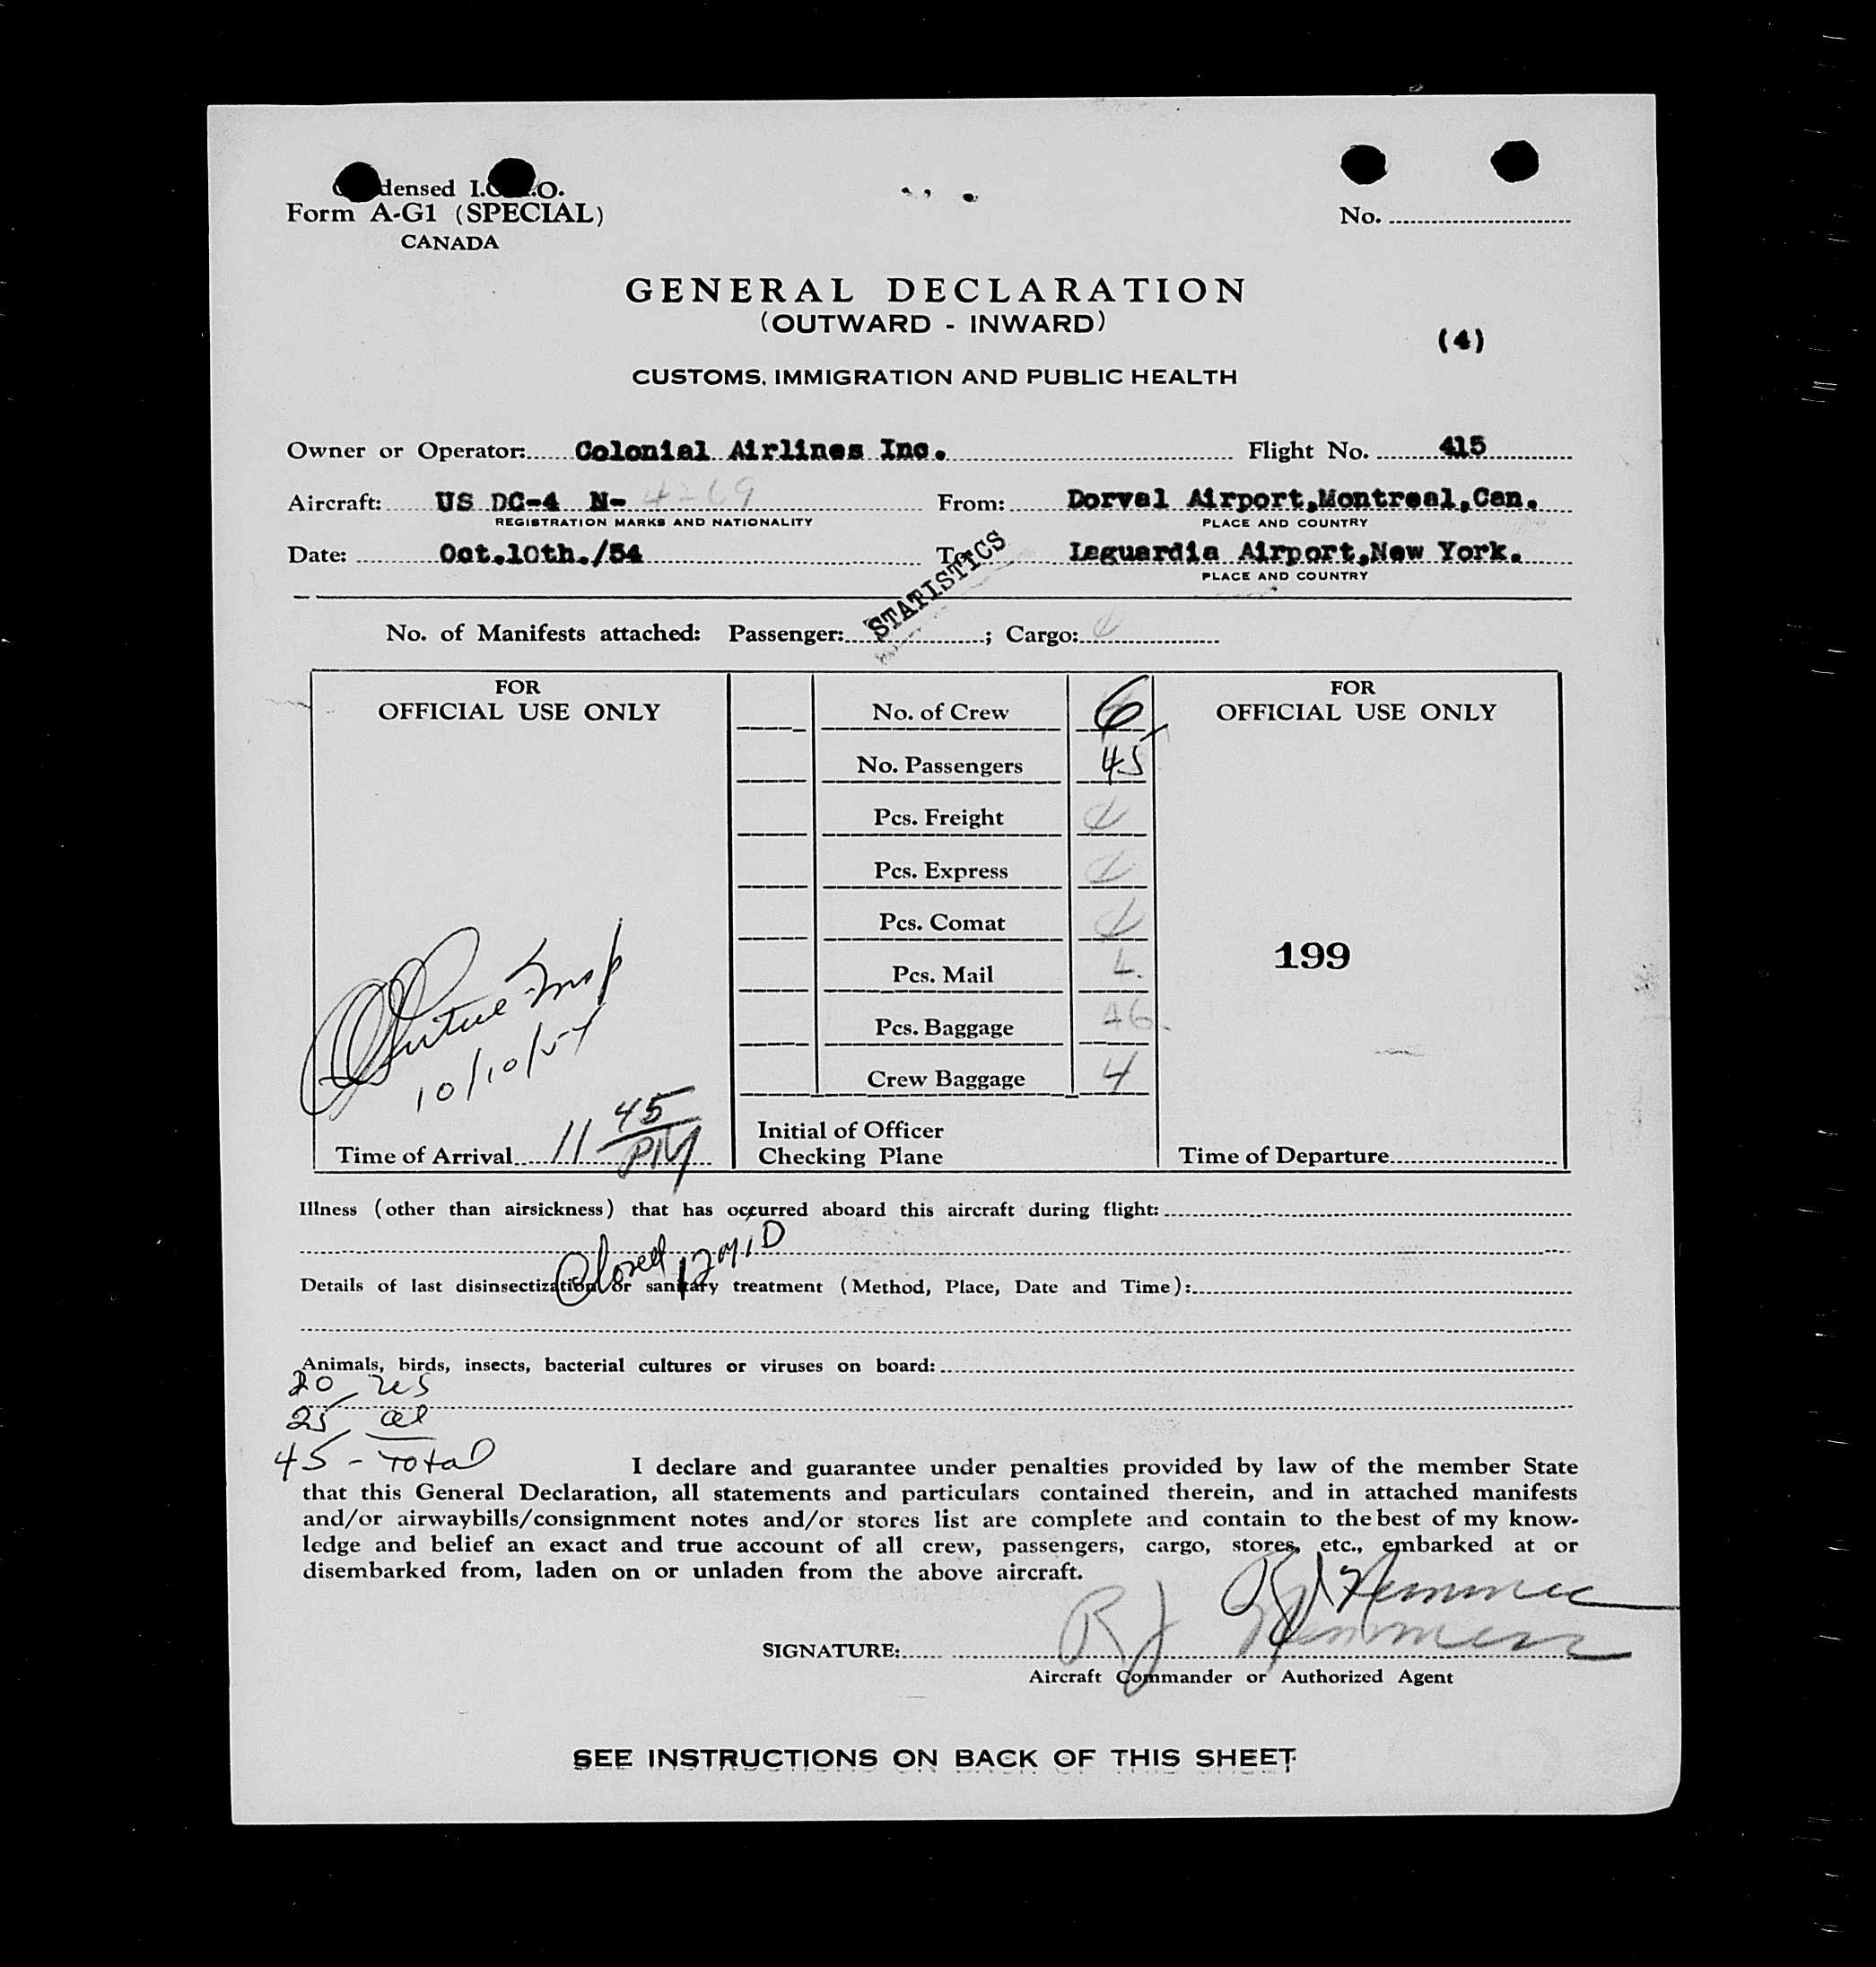 densed I.C O.
Form A-G1 (SPECIAL)
CANADA
No.
GENERAL DECLARATION
(OUTWARD - INWARD)
(4)
CUSTOMS, IMMIGRATION AND PUBLIC HEALTH
Owner or Operator: Colonial Airlines Inc. Flight No. 415
Aircraft: US DC-4 N- From: Dorval Airport,Montreal,Can.
REGISTRATION MARKS AND NATIONALITY PLACE AND COUNTRY
Date: Oct.10th./54 To: Laguardia Airport,New York.
PLACE AND COUNTRY
STATISTICS
No. of Manifests attached: Passenger: ; Cargo:
FOR
OFFICIAL USE ONLY
No. of Crew 6
No. Passengers 45
Pcs. Freight
Pcs. Express
Pcs. Comat
Pcs. Mail
Pcs. Baggage
Crew Baggage 4
Initial of Officer
Checking Plane
Insp
10/10/54
Time of Arrival 11 45 PM
FOR
OFFICIAL USE ONLY
199
Time of Departure
Illness (other than airsickness) that has occurred aboard this aircraft during flight:
Closed 12 MID
Details of last disinsectization or sanitary treatment (Method, Place, Date and Time):
Animals, birds, insects, bacterial cultures or viruses on board:
20 US
25 al
45 - Total
I declare and guarantee under penalties provided by law of the member State
that this General Declaration, all statements and particulars contained therein, and in attached manifests
and/or airwaybills/consignment notes and/or stores list are complete and contain to the best of my know-
ledge and belief an exact and true account of all crew, passengers, cargo, stores, etc., embarked at or
disembarked from, laden on or unladen from the above aircraft.
SIGNATURE: RJ
Aircraft Commander or Authorized Agent
SEE INSTRUCTIONS ON BACK OF THIS SHEET